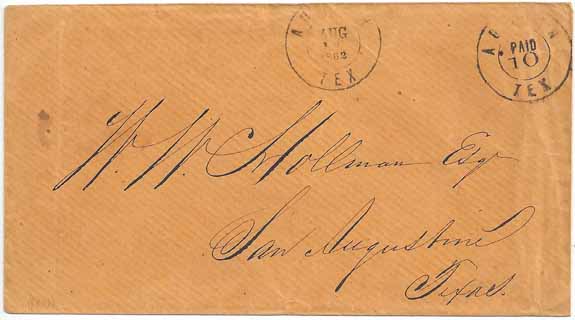 AUSTIN
AUG
1862
TEX
AUSTIN
PAID
10
TEX
W. W. Hollman Esqr
San Augustine
Texas